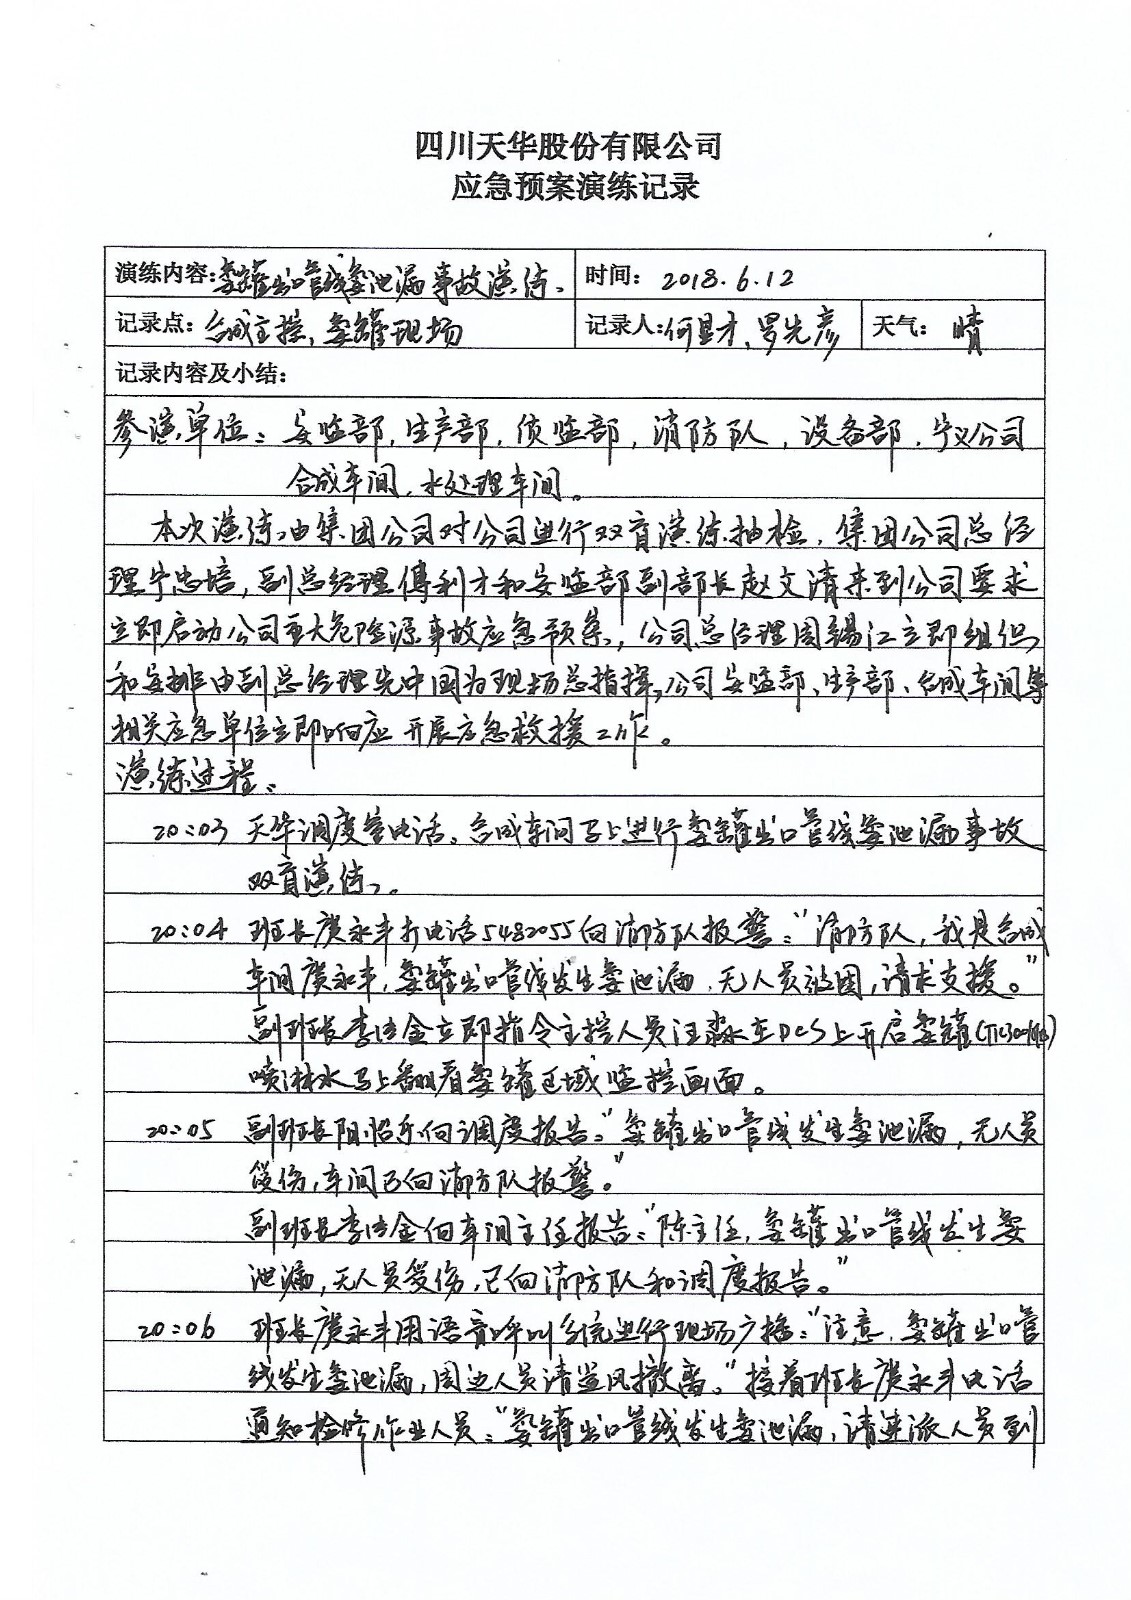 四川天华股份有限公司
应急预案演练记录
演练内容:氨罐出口管线氨泄漏事故演练、
时间: 2018.6.12
记录点: 合成主控、氨罐现场
记录人:何显才、罗先彦
天气: 晴
记录内容及小结:
参演单位: 安监部,生产部,质监部,消防队,设备部,宁义公司
合成车间,水处理车间。
本次演练由集团公司对公司进行双盲演练抽检,集团公司总经
理宁忠培,副总经理傅利才和安监部副部长赵文清来到公司要求
立即启动公司重大危险源事故应急预案,公司总经理周锡江立即组织
和安排由副总经理先中国为现场总指挥,公司安监部、生产部、合成车间等
相关应急单位立即响应开展应急救援工作。
演练过程:
20:03 天华调度室电话。合成车间马上进行氨罐出口管线氨泄漏事故
双盲演练。
20:04 班长庹永丰打电话5482055向消防队报警:"消防队,我是合成
车间庹永丰,氨罐出口管线发生氨泄漏,无人员被困,请求支援。"
副班长李金立即指令主控人员汪淼在DCS上开启氨罐
喷淋水马上翻看氨罐区域监控画面。
20:05 副班长阳向调度报告:"氨罐出口管线发生氨泄漏,无人员
受伤,车间已向消防队报警。"
副班长李金向车间主任报告:"陈主任,氨罐出口管线发生氨
泄漏,无人员受伤,已向消防队和调度报告。"
20:06 班长庹永丰用语音呼叫系统进行现场广播:"注意,氨罐出口管
线发生氨泄漏,周边人员请逆风撤离。"接着班长庹永丰电话
通知检修作业人员:"氨罐出口管线发生氨泄漏,请速派人员到